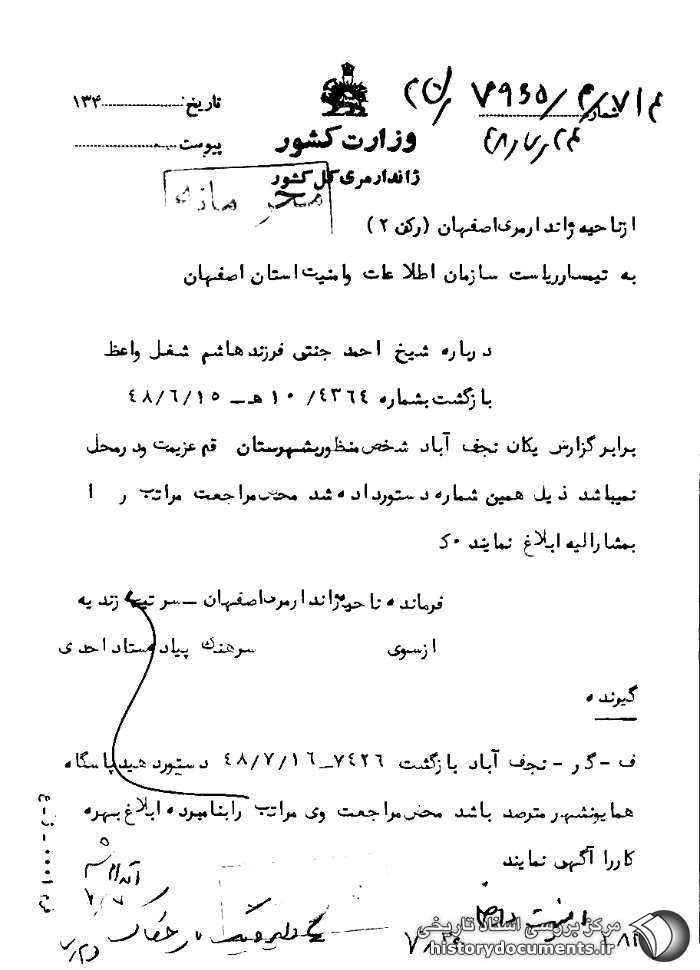 شماره ۷۹۶۵/م/۷۱
۴۸/۷/۲۴
تاریخ: ............ ۱۳۴
وزارت کشور
پیوست ............
ژاندارمری کل کشور
محرمانه
از ناحیه ژاندارمری اصفهان (رکن ۲)
به تیمسار ریاست سازمان اطلاعات وامنیت استان اصفهان
درباره شیخ احمد جنتی فرزند هاشم شغل واعظ
بازگشت بشماره ۴۳۶۴/ ۱۰ هـ ـ ۴۸/۶/۱۵
برابر گزارش یکان نجف آباد شخص منظور بشهرستان قم عزیمت ودرمحل
نمیباشد ذیل همین شماره دستور داده شد محض مراجعت مراتب را
بمشارالیه ابلاغ نمایند ۰ک
فرمانده ناحیه ژاندارمری اصفهان ـ سرتیپ زندیه
ازسوی سرهنگ پیاده ستاد احدی
گیونده
ف - گر - نجف آباد بازگشت ۷۴۲۶ـ۴۸/۷/۱۶ دستور دهید پاسگاه
همایونشهر مترصد باشد محض مراجعت وی مراتب را بنامبرده ابلاغ بهره
کار را آگهی نمایند
امنیت داخلی
مرکز بررسی اسناد تاریخی
historydocuments.ir